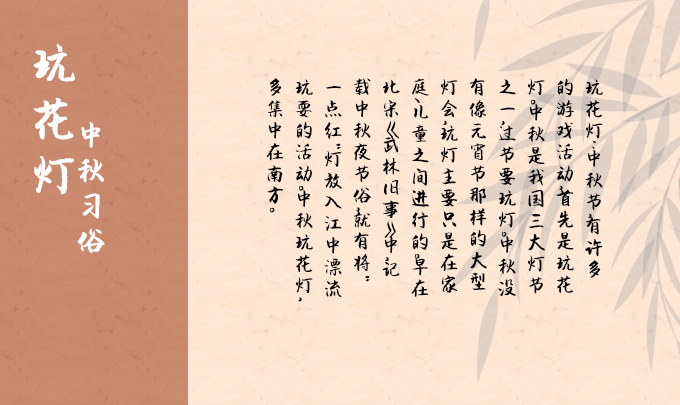 玩花灯
中秋习俗
玩花灯,中秋节有许多
的游戏活动,首先是玩花
灯。中秋是我国三大灯节
之一,过节要玩灯。中秋没
有像元宵节那样的大型
灯会,玩灯主要只是在家
庭、儿童之间进行的。早在
北宋《武林旧事》中,记
载中秋夜节俗,就有将“
一点红”灯放入江中漂流
玩耍的活动。中秋玩花灯,
多集中在南方。